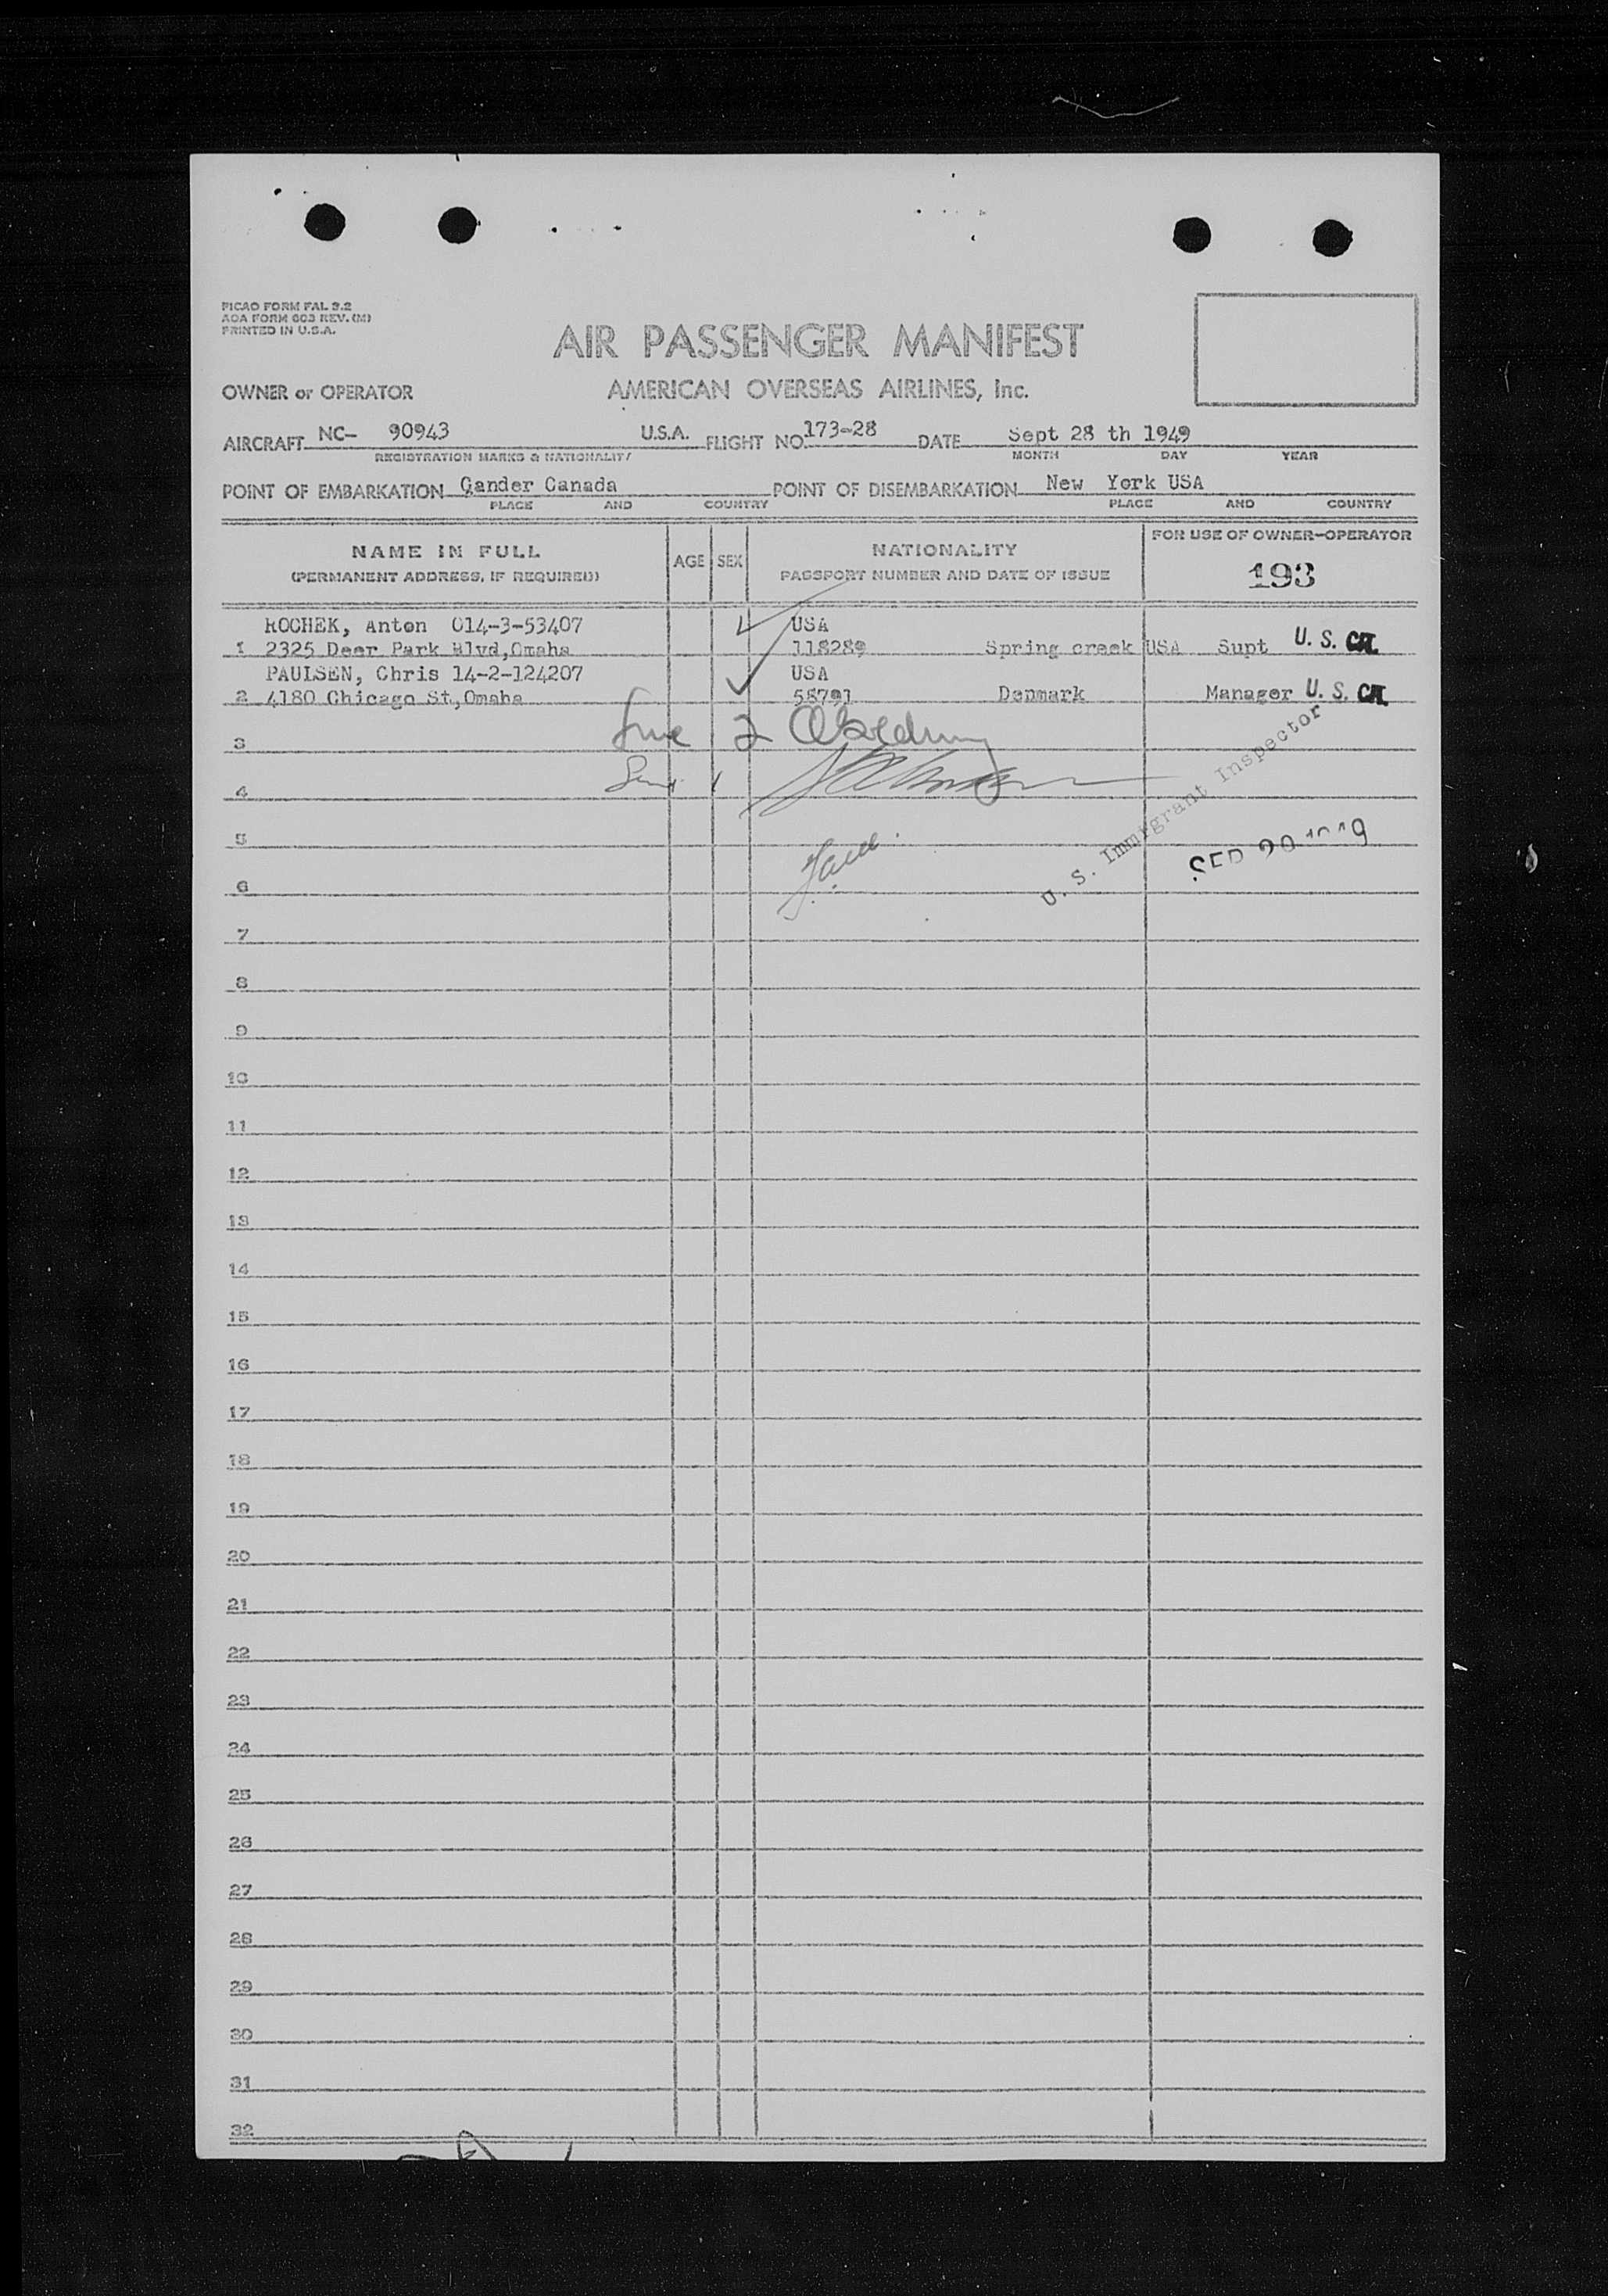 PICAO FORM FAL 3.2
AOA FORM 603 REV. (M)
PRINTED IN U.S.A.
AIR PASSENGER MANIFEST
OWNER or OPERATOR AMERICAN OVERSEAS AIRLINES, Inc.
AIRCRAFT NC- 90943 U.S.A. FLIGHT NO. 173-28 DATE Sept 28 th 1949
REGISTRATION MARKS & NATIONALITY MONTH DAY YEAR
POINT OF EMBARKATION Gander Canada POINT OF DISEMBARKATION New York USA
PLACE AND COUNTRY PLACE AND COUNTRY
NAME IN FULL AGE SEX NATIONALITY FOR USE OF OWNER-OPERATOR
(PERMANENT ADDRESS, IF REQUIRED) PASSPORT NUMBER AND DATE OF ISSUE 193
ROCHEK, Anton 014-3-53407 USA
1 2325 Deer Park Blvd,Omaha 118289 Spring creek USA Supt U. S. CIT.
PAULSEN, Chris 14-2-124207 USA
2 4180 Chicago St,Omaha 58791 Denmark Manager U. S. CIT.
3 2
4
5
U. S. Immigrant Inspector
6
7
8
9
10
11
12
13
14
15
16
17
18
19
20
21
22
23
24
25
26
27
28
29
30
31
32